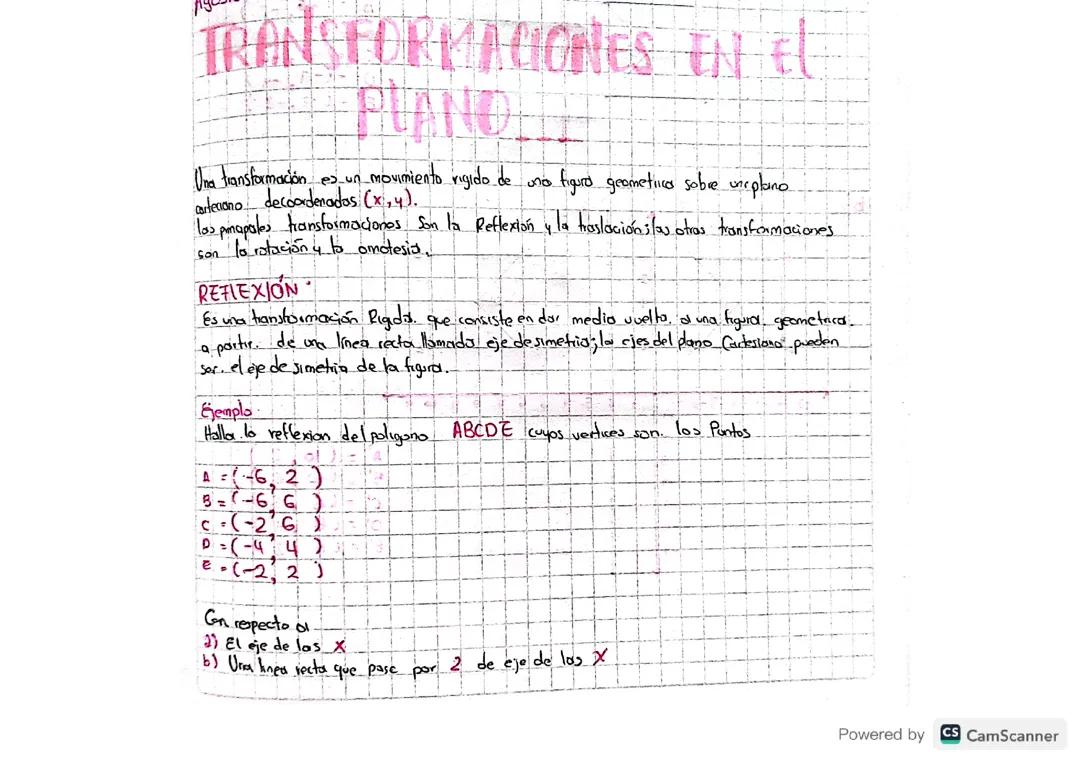 TRANSFORMACIONES EN El
PLANO
Una transformación es un movimiento rigido de una figura geometrica sobre un plano
cartesiano de coordenadas (x,y).
las principales transformaciones son la Reflexión y la traslación; las otras transformaciones
son la rotación y la omotesia.
REFLEXIÓN
Es una transformación Rigida. que consiste en dar media vuelta. a una figura. geometrica.
a partir. de una línea recta llamada eje de simetria; los ejes del plano Cartesiano pueden
ser. el eje de simetria de la figura.
Ejemplo
Halla la reflexion del poligono ABCDE cuyos vertices son. los Puntos
A = (-6, 2)
B = (-6, 6)
C = (-2, 6)
D = (-4, 4)
E = (-2, 2)
Con respecto a
a) El eje de las X
b) Una linea recta que pase por 2 de eje de las X
Powered by CS CamScanner